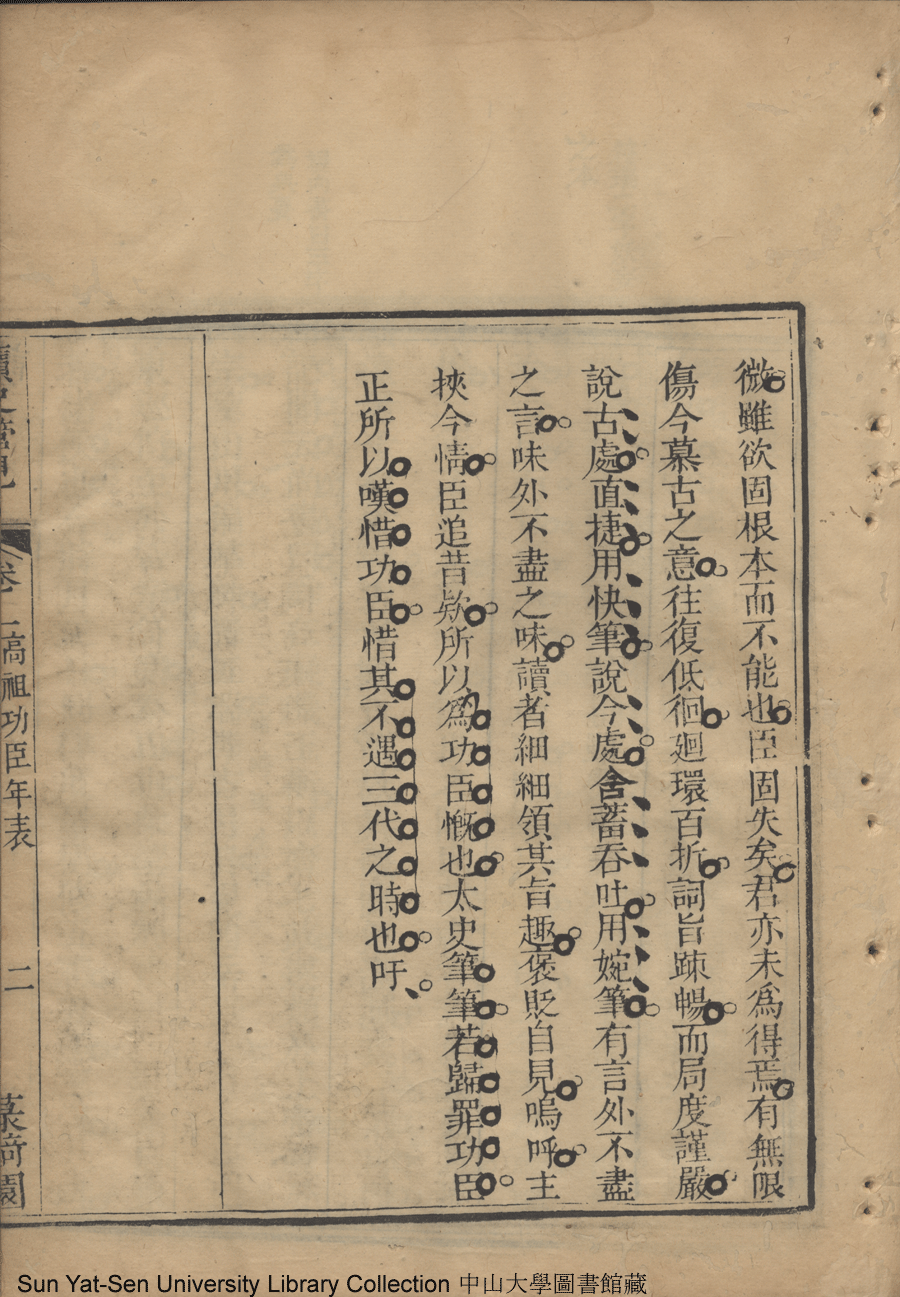 微雖欲固根本而不能也臣固失矣君亦未爲得焉有無限
傷今慕古之意往復低徊廻環百折詞旨疎暢而局度謹嚴
說古處直捷用快筆說今處含蓄吞吐用婉筆有言外不盡
之言味外不盡之味讀者細細領其旨趣褒貶自見嗚呼主
挾今情臣追昔欵所以爲功臣慨也太史筆筆若歸罪功臣
正所以嘆惜功臣惜其不遇三代之時也吁
讀史管見
卷二高祖功臣年表
二
篆猗園
Sun Yat-Sen University Library Collection 中山大學圖書館藏